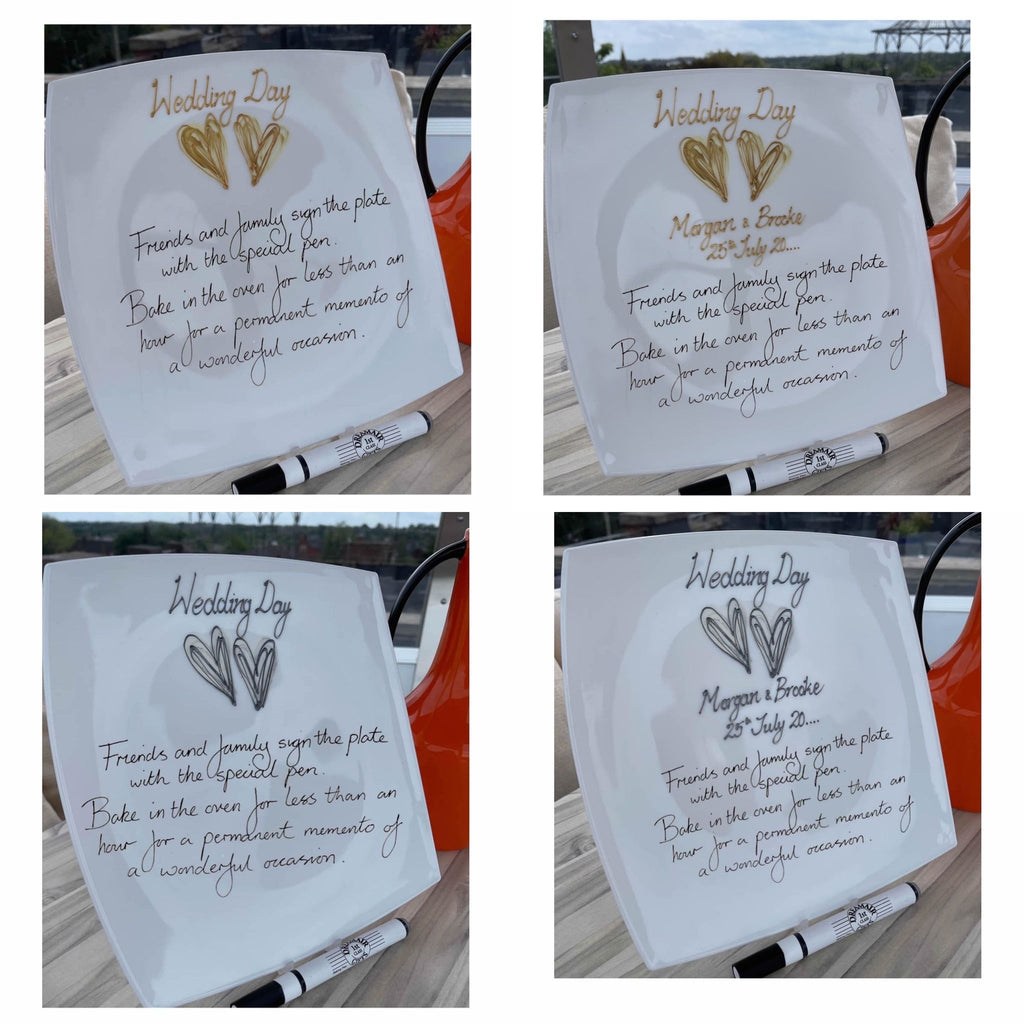 Wedding Day
Friends and family sign the plate
with the special pen.
Bake in the oven for less than an
hour for a permanent memento of
a wonderful occasion.
DREAMAIR
1st
CLASS
Wedding Day
Morgan & Brooke
25th July 20....
Friends and family sign the plate
with the special pen.
Bake in the oven for less than an
hour for a permanent memento of
a wonderful occasion.
DREAMAIR
1st
CLASS
Wedding Day
Friends and family sign the plate
with the special pen.
Bake in the oven for less than an
hour for a permanent memento of
a wonderful occasion.
DREAMAIR
1st
CLASS
Wedding Day
Morgan & Brooke
25th July 20....
Friends and family sign the plate
with the special pen.
Bake in the oven for less than an
hour for a permanent memento of
a wonderful occasion.
DREAMAIR
1st
CLASS